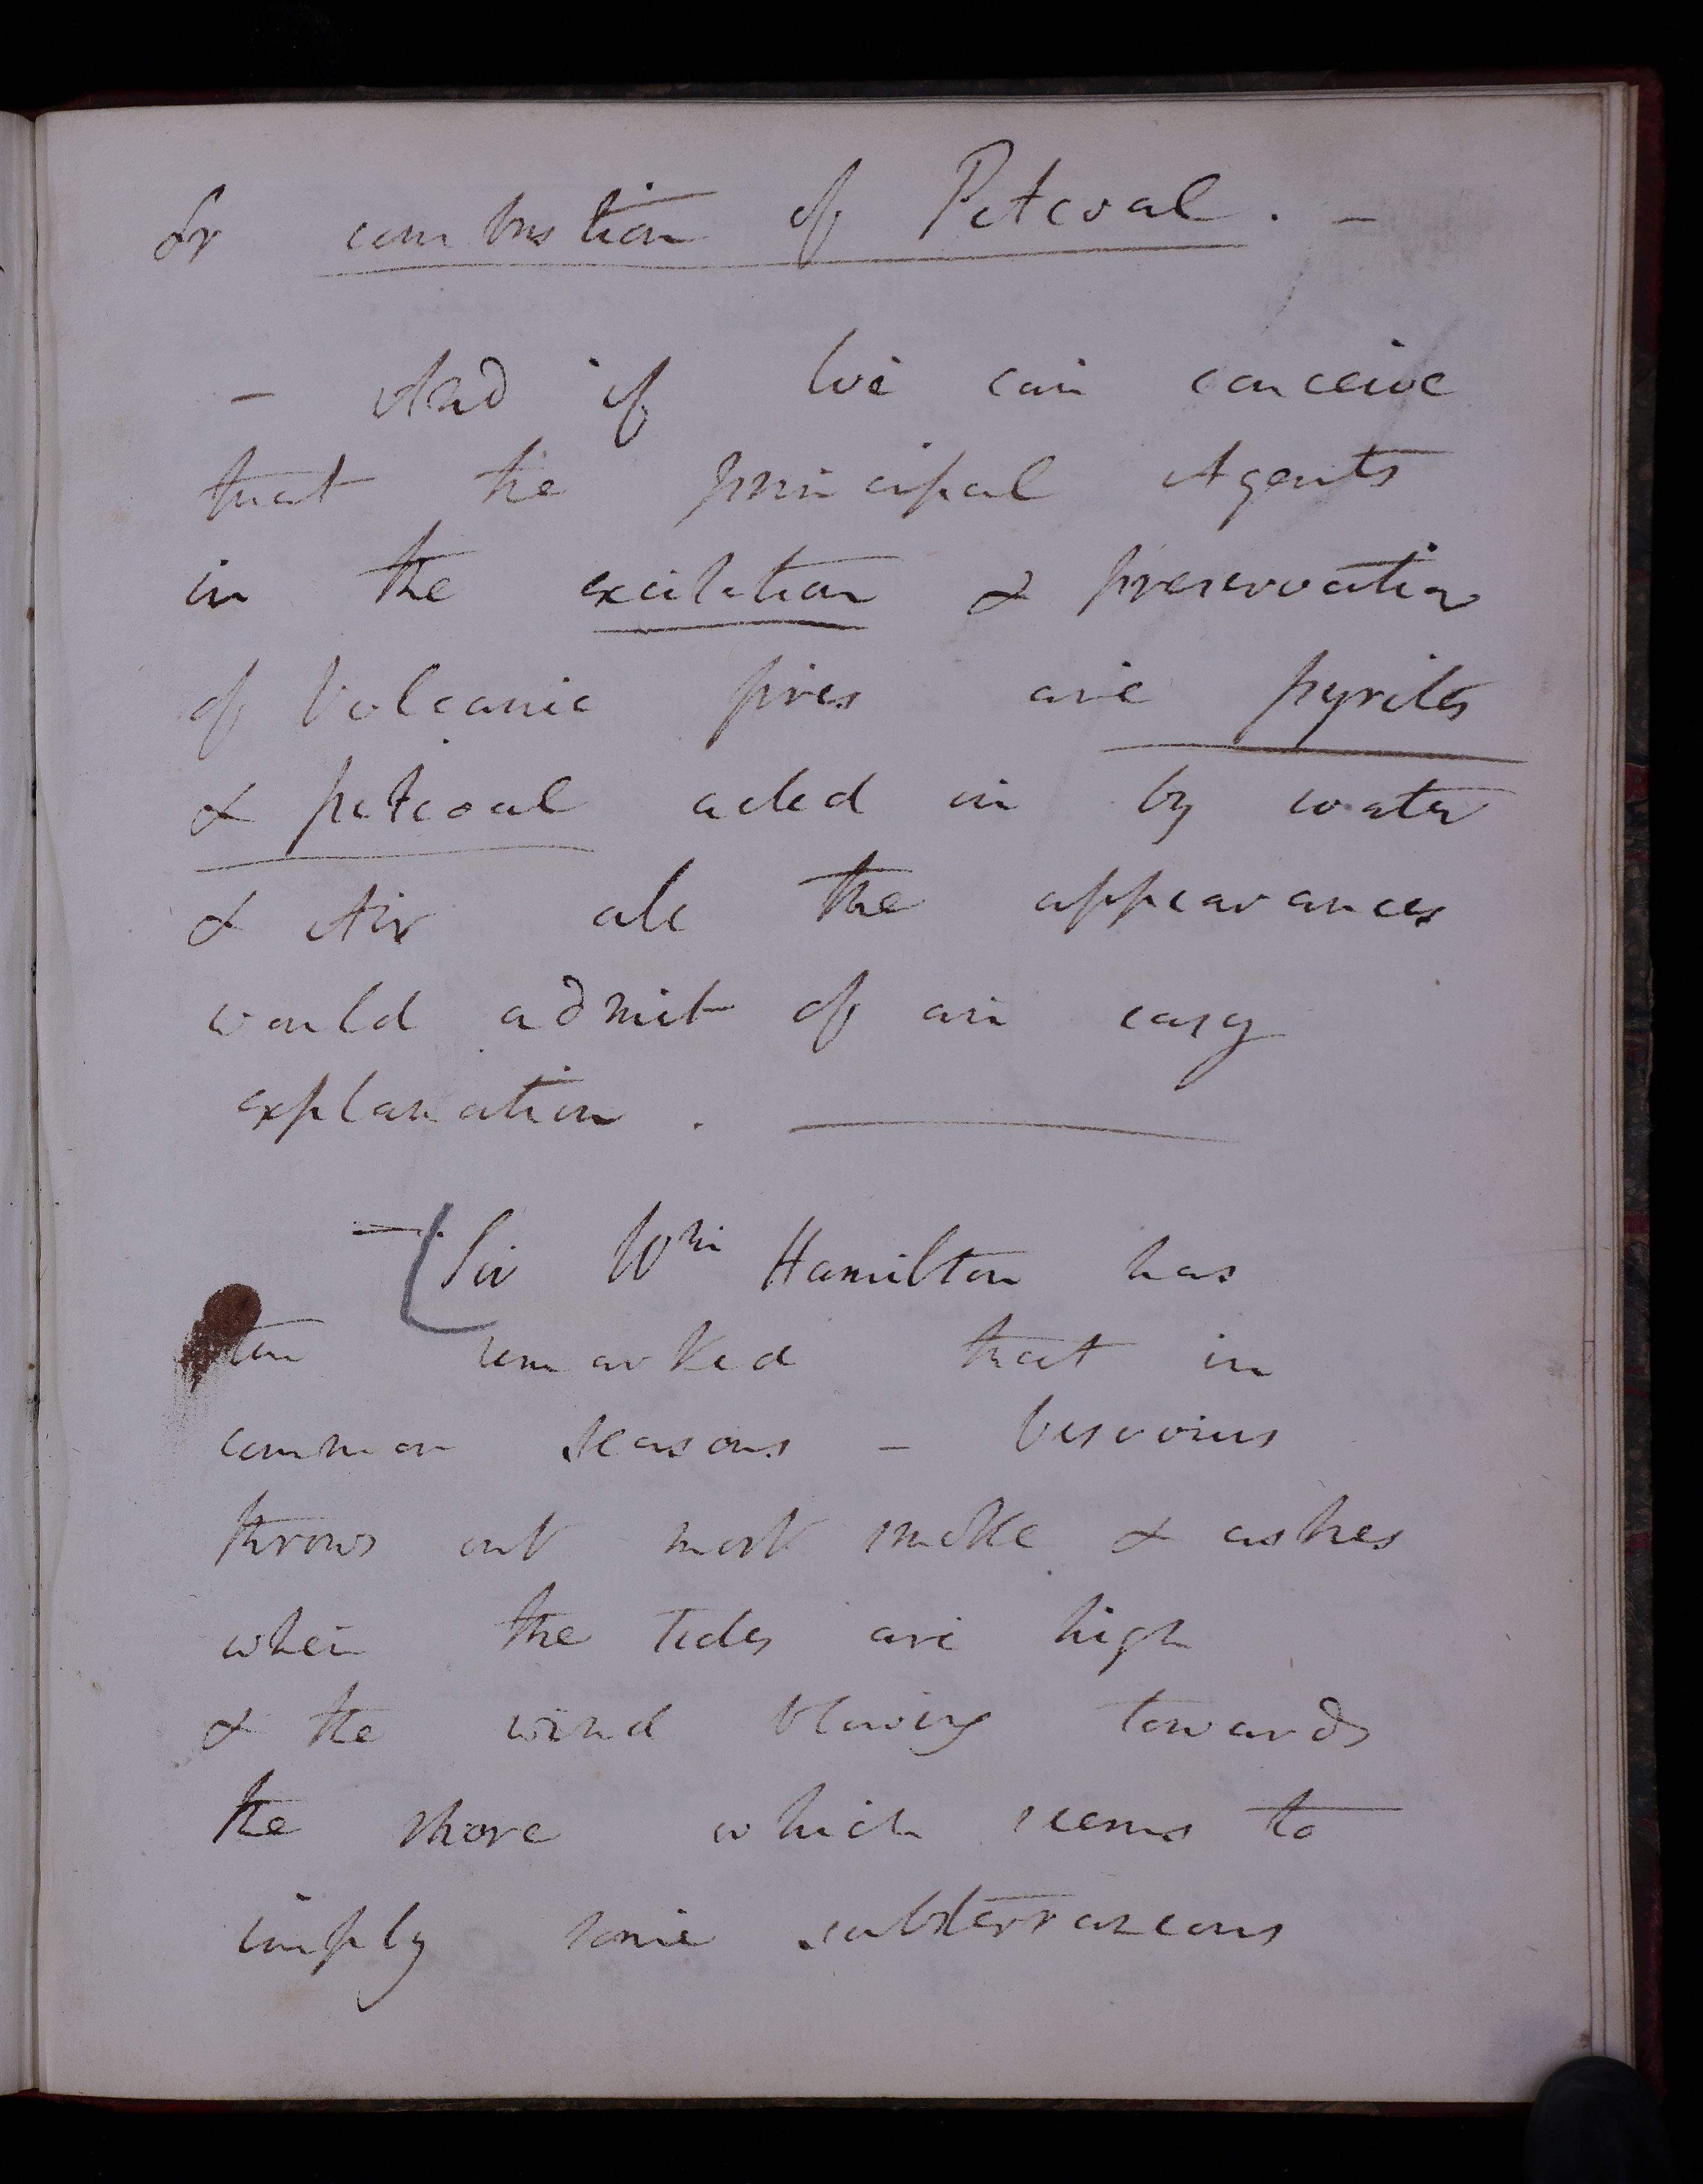 or combustion of Pitcoal. –
– And if we can conceive
that the principal Agents
in the excitation & preservation
of Volcanic fires are pyrites
& pitcoal acted on by water
& Air all the appearances
would admit of an easy
explanation.
– Sir Wm Hamilton has
remarked that in
common seasons – Vesuvius
throws out most smoke & ashes
when the tides are high
& the wind blowing towards
the shore which seems to
imply some subterraneous